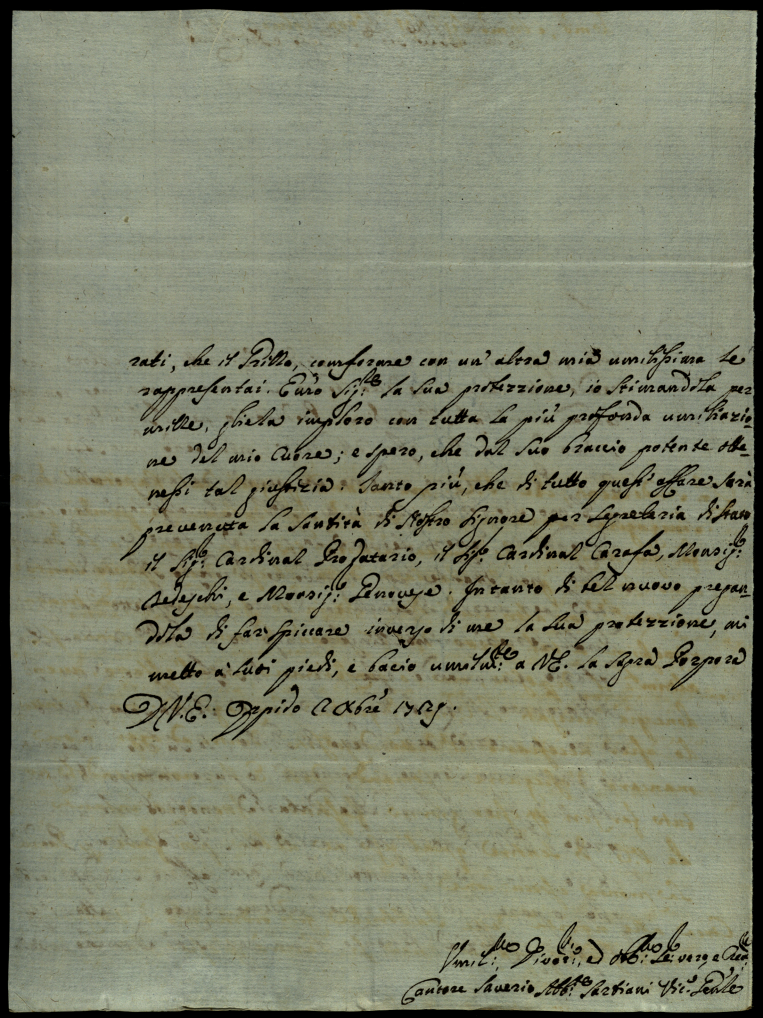 rati, che il Grillo, conforme con un' altra mia umilissima le
rappresentai. Em̃o Sig.re la sua protezzione, io stimandola per
mille, gliela imploro con tutta la più profonda umiliazio-
ne del mio Cuore; e spero, che dal suo braccio potente otte-
nessi tal giustizia: Tanto più, che di tutto quest' affare sarà
prevenuta la Santità di Nostro Signore per Segreteria di Stato
il Sig.r Cardinal ProDatario, il Sig.r Cardinal Carafa, Monsig.r
Tedeschi, e Monsig.r Genovese. Intanto di bel nuovo pregan-
dola di far spiccare inverso di me la sua protezzione, mi
metto a' suoi piedi, e bacio umilm.te a V.E. la Sagra Porpora
D.V.E. Oppido 2 Xbre
Umil.mo Divot.mo, ed Obb.mo Se: vero, e
Cantore Saverio Abb.te Vic.o Gen̄le